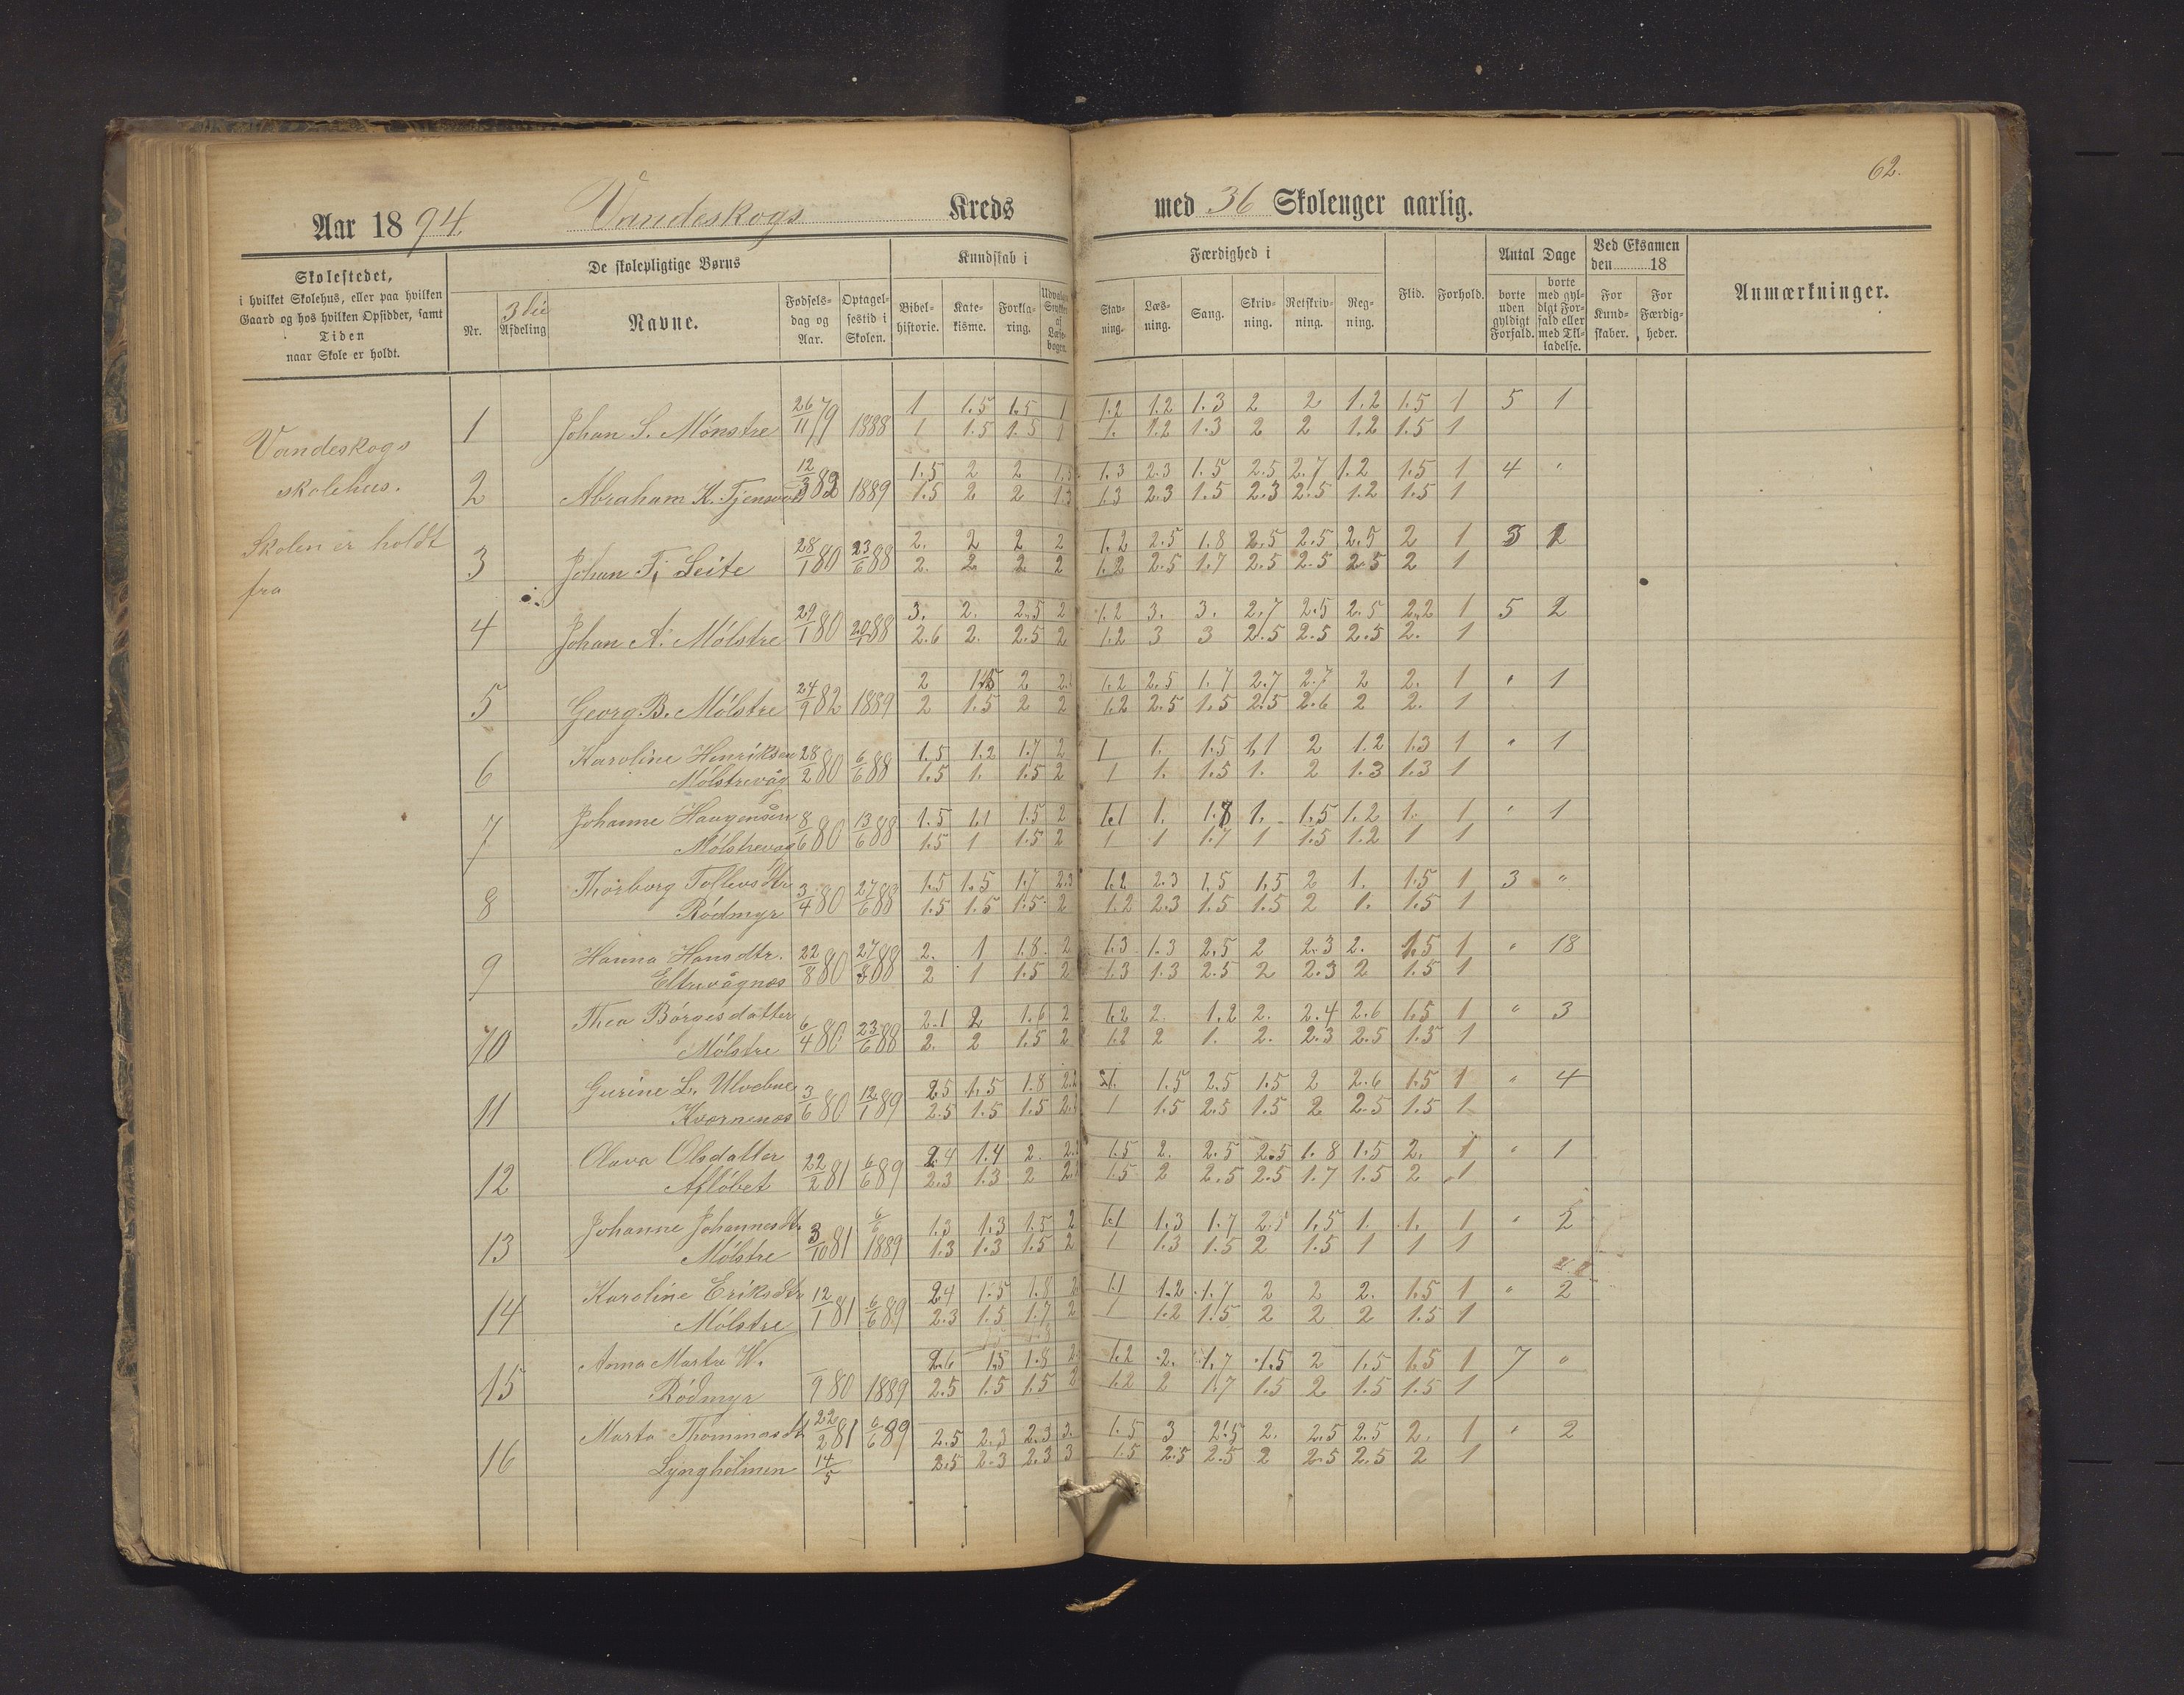 62.
Aar 1894. Vandeskogs Kreds med 36 Skolenger aarlig.
Skolestedet,
i hvilket Skolehus, eller paa hvilken
Gaard og hos hvilken Opsidder, samt
Tiden
naar Skole er holdt.
De skolepligtige Børns
Nr.
3die
Afdeling
Navne.
Fødsels-
dag og
Aar.
Optagel-
sestid i
Skolen.
Kundskab i
Bibel-
historie.
Kate-
kisme.
Forkla-
ring.
Udvalgte
Stykker
af
Læse-
bogen.
Færdighed i
Stav-
ning.
Læs-
ning.
Sang.
Skriv-
ning.
Retskriv-
ning.
Reg-
ning.
Flid.
Forhold.
Antal Dage
borte
uden
gyldigt
Forfald.
borte
med gyl-
digt For-
fald eller
med Til-
ladelse.
Ved Eksamen
den 18
For
Kund-
skaber.
For
Færdig-
heder.
Anmærkninger.
Vandeskogs
skolehus.
Skolen er holdt
fra
1 Johan S. Mønstre 26/11 79 1888 1 1.5 1.5 1 1.2 1.2 1.3 2 2 1.2 1.5 1 5 1
1 1.5 1.5 1 1. 1.2 1.3 2 2 1.2 1.5 1
2 Abraham K. 12/3 82 1889 1.5 2 2 1.3 2.3 1.5 2.5 2.7 1.2 1.5 1 4 "
1.5 2 2 1.3 1.3 2.3 1.5 2.3 2.5 1.2 1.5 1
3 Johan F. Leite 28/1 80 23/6 88 2. 2 2 2 1.2 2.5 1.8 2.5 2.5 2.5 2 1 3
2. 2 2 2 1.2 2.5 1.7 2.5 2.5 2.5 2 1
4 Johan A. Mølstre 29/1 80 88 3. 2. 2.5 2 1.2 3. 3. 2.7 2.5 2.5 2.2 1 5 2
2.6 2. 2.5 2 1.2 3 3 2.5 2.5 2.5 2. 1
5 Georg B. Mølstre 24/9 82 1889 2 2 1.2 2.5 1.7 2.7 2.7 2 2. 1 " 1
2 1.5 2 2 1.2 2.5 1.5 2.5 2.6 2 2. 1
6 Karoline Henriksen 28/2 80 6/6 88 1.5 1.2 1.7 2 1 1. 1.5 1.1 2 1.2 1.3 1 " 1
Mølstrevåg 1.5 1. 1.5 2 1 1. 1.5 1. 2 1.3 1.3 1
7 Johanne 8/6 80 13/6 88 1.5 1.1 1.5 2 1.1 1. 1.8 1. 1.5 1.2 1. 1 " 1
Mølstrevåg 1.5 1 1.5 2 1 1 1.7 1 1.5 1.2 1 1
8 Thorborg Tollevsdtr 3/4 80 27/6 88 1.5 1.5 1.7 2.3 1.2 2.3 1.5 1.5 2 1. 1.5 1 3 "
Rødmyr 1.5 1.5 1.5 2 1.2 2.3 1.5 1.5 2 1. 1.5 1
9 Hanna Hansdtr. 22/8 80 27/8 88 2. 1 1.8 2 1.3 1.3 2.5 2 2.3 2. 1.5 1 " 18
Eltrevågnes 2 1 1.5 2 1.3 1.3 2.5 2 2.3 2 1.5 1
10 Thea Børgesdatter 6/4 80 23/6 88 2.1 2 1.6 2 1.2 2. 1.2 2. 2.4 2.6 1.5 1 " 3
Mølstre 2. 2 1.5 2 1.2 2 1. 2. 2.3 2.5 1.5 1
11 Gurine L. 3/6 80 12/1 89 2.5 1.5 1.8 2.2 1. 1.5 2.5 1.5 2 2.6 1.5 1 " 4
Kvernenes 2.5 1.5 1.5 1 1.5 2.5 1.5 2 2.5 1.5 1
12 Olava Olsdatter 22/2 81 6/6 89 2.4 1.4 2. 1.5 2. 2.5 2.5 1.8 1.5 2. 1 " 1
Afløbet 2.3 1.3 2 1.5 2 2.5 2.5 1.7 1.5 2 1
13 Johanne Johannesdtr 3/10 81 6/6 1889 1.3 1.3 1.5 2 1.1 1.3 1.7 2.5 1.5 1. 1. 1 " 2
Mølstre 1.3 1.3 1.5 2 1 1.3 1.5 2 1.5 1 1 1
14 Karoline Eriksdtr 12/1 81 6/6 89 2.4 1.5 1.8 2 1.1 1.2 1.7 2 2 2. 1.5 1 " 2
Mølstre 2.3 1.5 1.7 2 1 1.2 1.5 2 2 2 1.5 1
15 Anna Marta W. /9 80 1889 2.6 1.5 1.8 1.2 2. 1.7 1.5 2 1.5 1.5 1 7 "
Rødmyr 2.5 1.5 1.5 2 1.2 2 1.7 1.5 2 1.5 1.5 1
16 Marta Thommasdt 22/2 81 6/6 89 2.5 2.3 2.3 3. 1.5 3 2.5 2. 2.5 2.5 2. 1 " 2
Lyngholmen 14/5 2.5 2.3 2.3 3 1.5 2.5 2.5 2 2.5 2.5 2 1